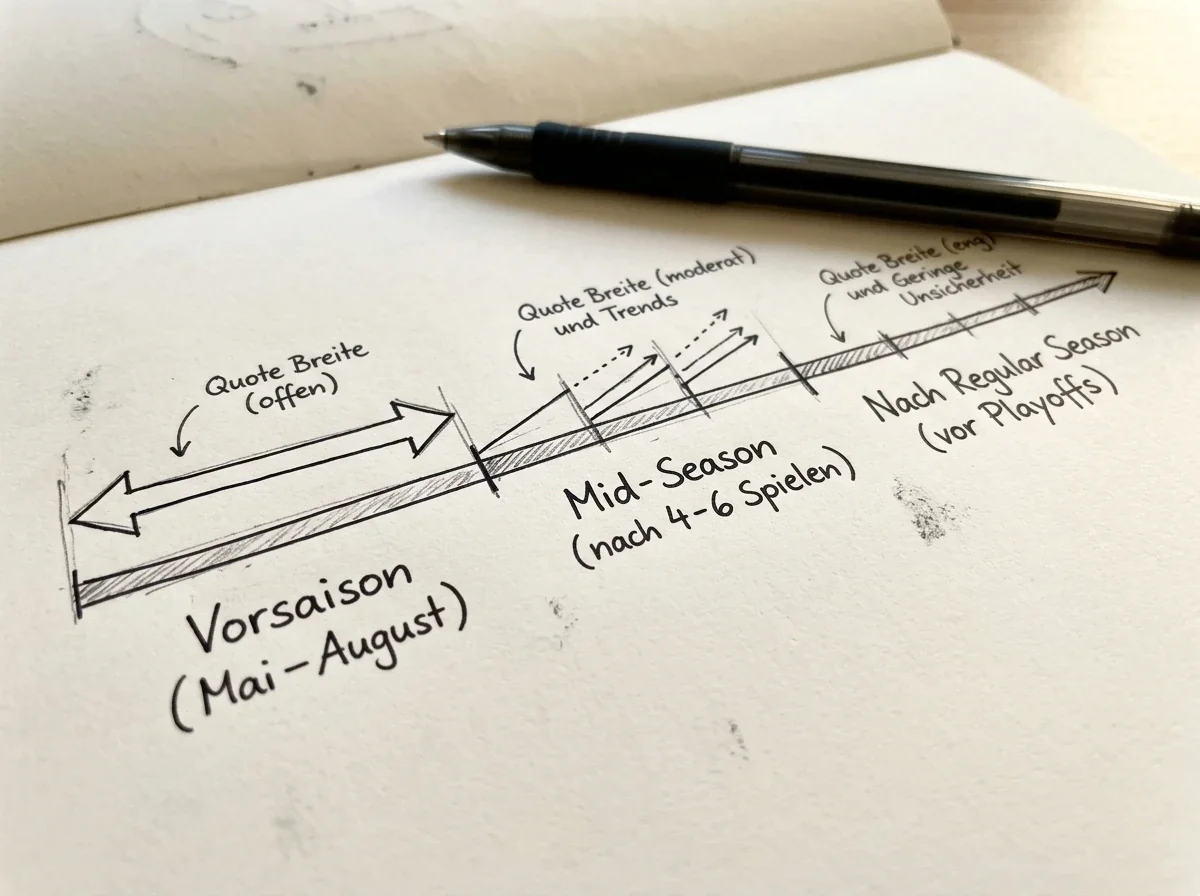 Quote Breite
(offen)
Quote Breite (moderat)
und Trends
Quote Breite (eng)
und Geringe
Unsicherheit
Vorsaison
(Mai–August)
Mid-Season
(nach 4-6 Spielen)
Nach Regular Season
(vor Playoffs)